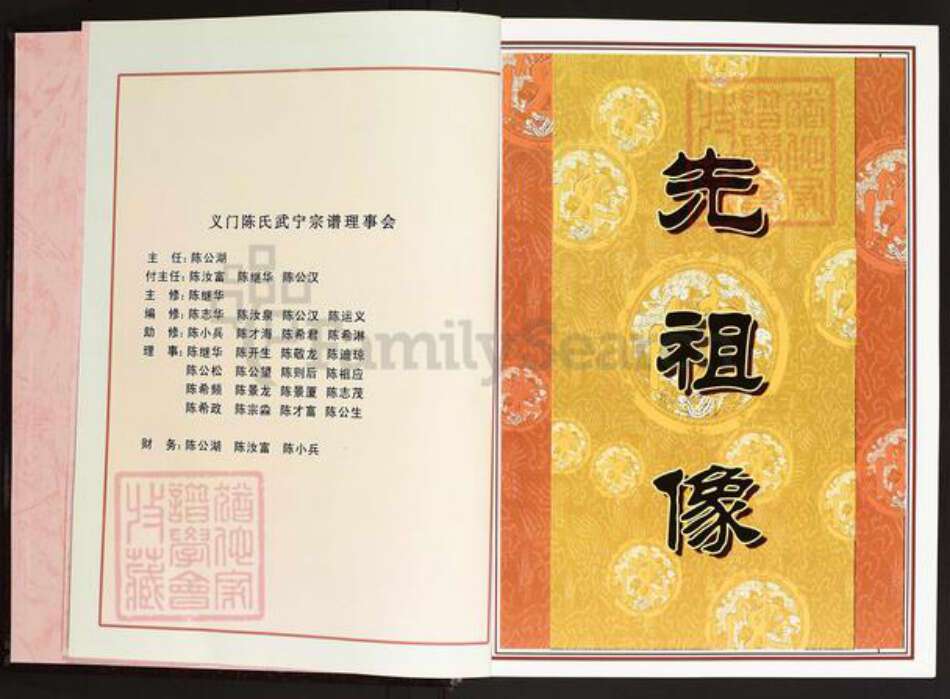 义门陈氏武宁宗谱理事会
主 任:陈公湖
付主任:陈汝富 陈继华 陈公汉
主 修:陈继华
编 修:陈志华 陈汝泉 陈公汉 陈运义
助 修:陈小兵 陈才海 陈希君 陈希淋
理 事:陈继华 陈开生 陈敬龙 陈迪琼
陈公松 陈公望 陈则后 陈祖应
陈希频 陈景龙 陈景厦 陈志茂
陈希政 陈宗淼 陈才富 陈公生
财 务:陈公湖 陈汝富 陈小兵
先祖像
FamilySear